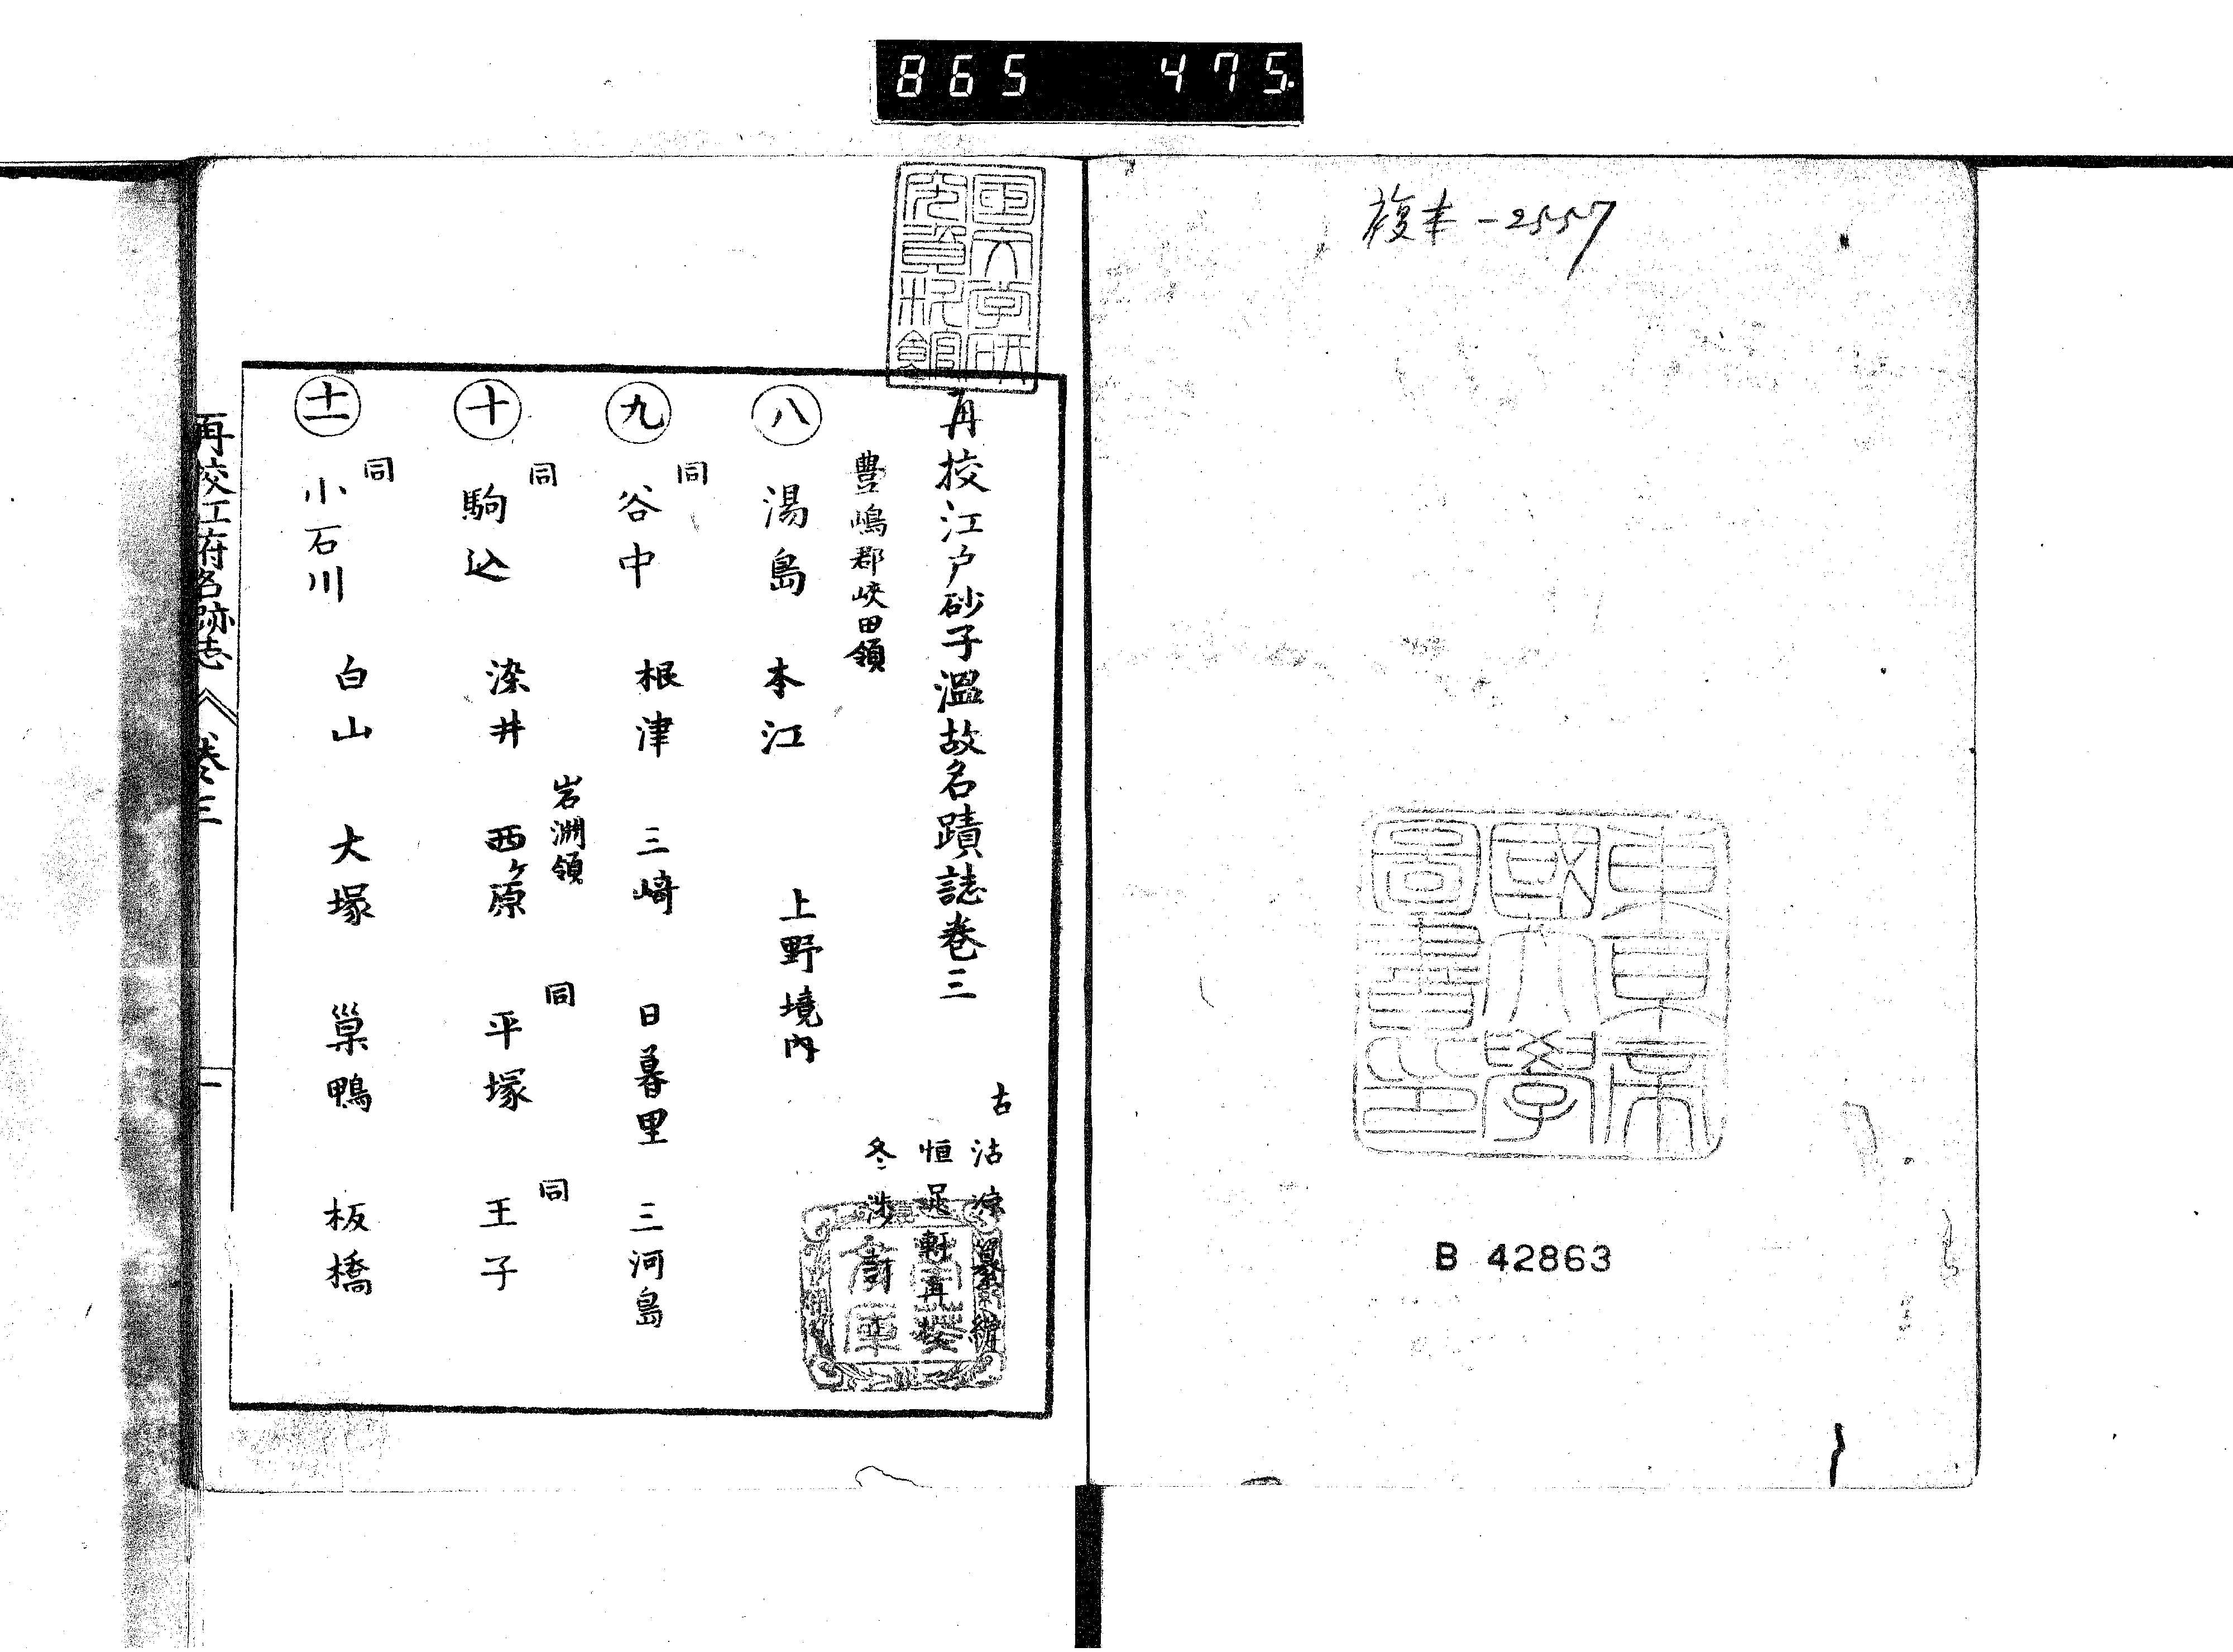 865 475.
複本-2557
東京帝
國大學
圖書印
B 42863
再挍江戸砂子温故名蹟誌巻三
古
沾凉纂緝
恒足軒再挍
冬渉
豊嶋郡峽田領
八 湯島 本江 上野境内
同
九 谷中 根津 三崎 日暮里 三河島
同 岩渕領 同 同
十 駒込 染井 西ヶ原 平塚 王子
同
十一 小石川 白山 大塚 巣鴨 板橋
再校江府名跡志 巻三 一